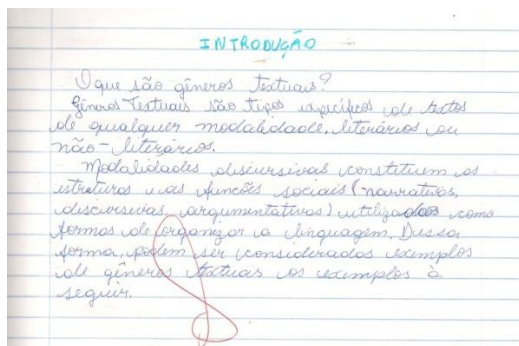 INTRODUÇÃO
O que são gêneros textuais?
Gêneros Textuais são tipos específicos de textos
de qualquer modalidade, literários ou
não-literários.
Modalidades discursivas constituem as
estruturas e as funções sociais (narrativas,
discursivas, argumentativas) utilizadas como
formas de organizar a linguagem. Dessa
forma, podem ser considerados exemplos
de gêneros textuais os exemplos à
seguir.